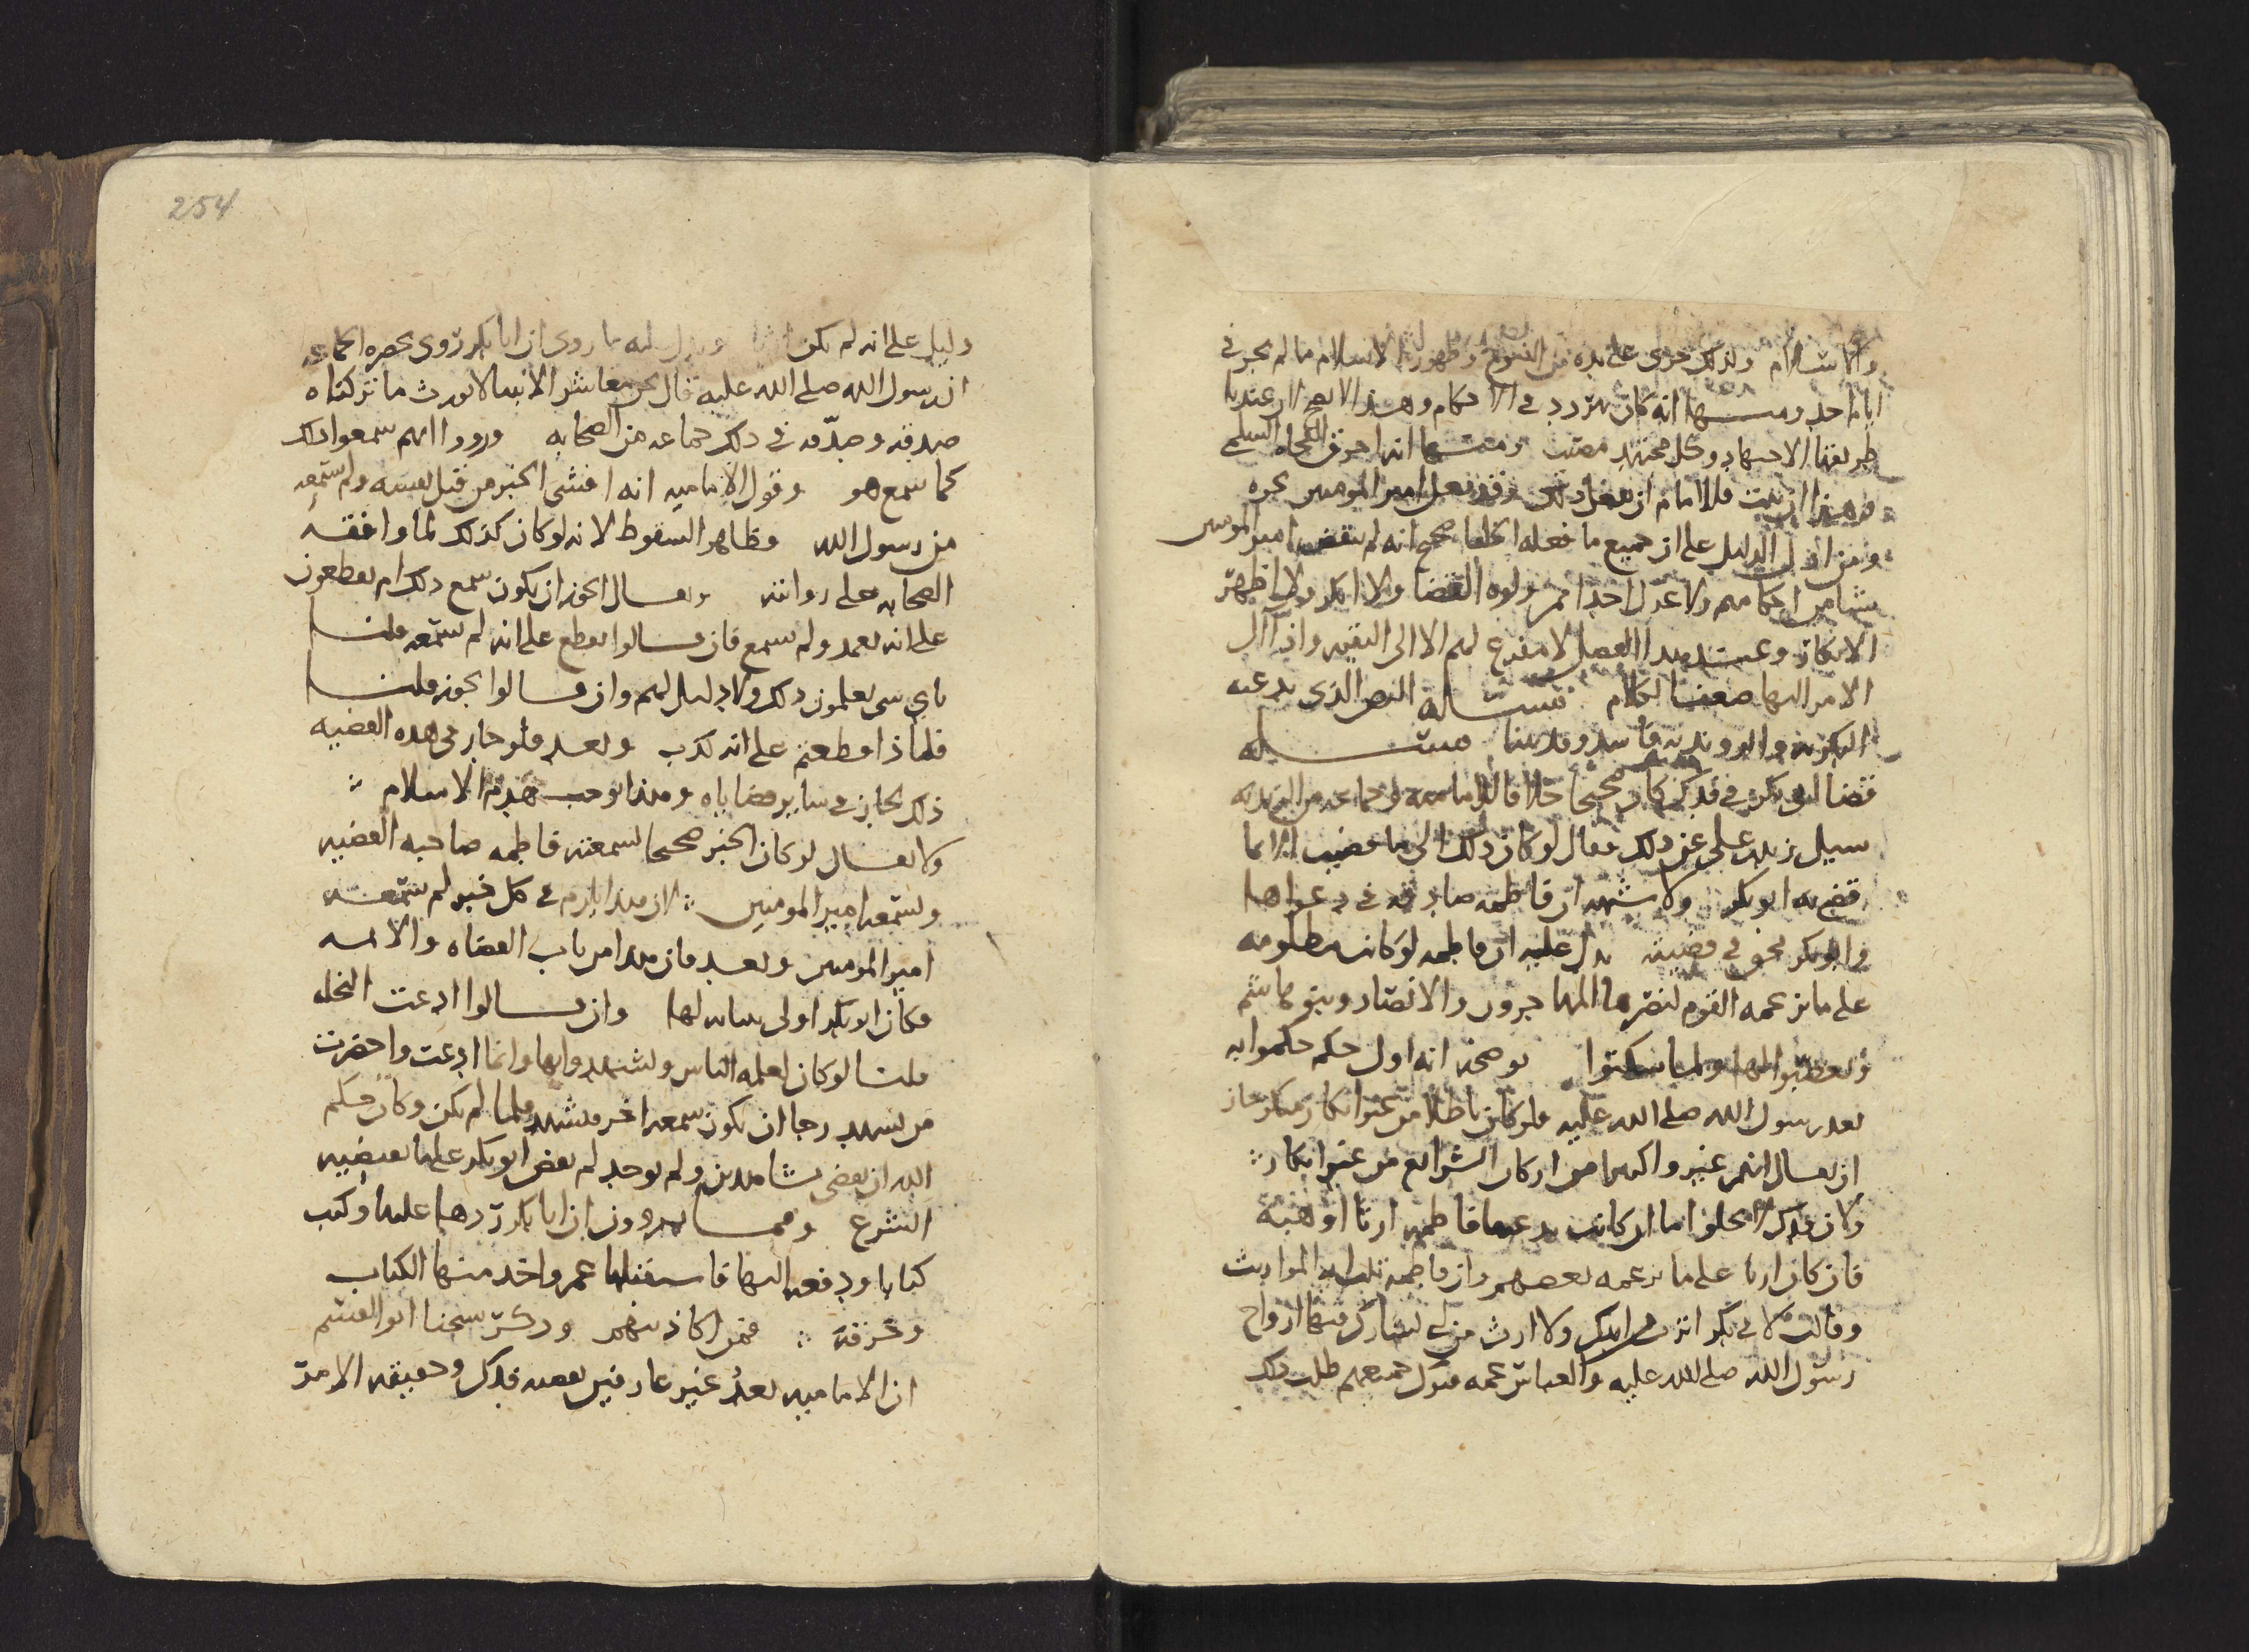 والاسلام ولذلك جرى على يده من الفتوح وظهور الاسلام ما لم يجر في
ايام احد ومنها انه كان يتردد في الاحكام وهذا لا يصح لان عندنا
طريقها الاجتهاد وكل مجتهد مصيب ومنها انه احرق الفجاه السلمي
وهذا ان ثبت فللامام ان يفعل ذلك وقد فعل امير المومنين بحره
ومن ادل الدليل على ان جميع ما فعله الخلفا صحيح انه لم ينقض امير المومنين
شيا من احكامهم ولا عزل احدا ممن ولوه القضا ولا انكر ولا اظهر
الانكار وعند هذا الفصل لا مفزع لهم الا الى التقيه واذا آل
الامر اليها ضعف الكلام مسئلة النص الذي يدعيه
البكريه والروونديه فاسد وقد بينا مسئله
قضا ابو بكر في فدك كان صحيحا خلاف الاماميه وجماعه من الزيديه
سيل زيد بن علي عن ذلك فقال لو كان ذلك الي ما قضيت الا بما
قضى به ابو بكر ولا شبهه ان فاطمه صادقه في دعواها
وابو بكر محق في قضيته يدل عليه ان فاطمه لو كانت مظلومه
على ما يزعمه القوم لنصرها المهاجرون والانصار وبنو هاشم
ولغضبوا لها ولما سكتوا يوضحه انه اول حكم حكموا به
بعد رسول الله صلى الله عليه ولو كان باطلا من غير انكار منكر جاز
ان يقال انهم غيروا كثيرا من اركان الشرائع من غير انكار
ولان فدك لا يخلوا اما ان كانت يدعيها فاطمه ارثا او هبة
فان كان ارثا على ما يزعمه بعضهم وان فاطمه تلت ايه المواريث
وقالت لابي بكر اترث اباك ولا ارث من ابي لشارك فيها ازواج
رسول الله صلى الله عليه والعباس عمه فترك جميعهم طلب ذلك
254
دليل على انه لم يكن ارثا ويدل عليه ما روى ان ابا بكر روى بحضره الجماعه
ان رسول الله صلى الله عليه قال نحن معاشر الانبيا لا نورث ما تركناه
صدقه وصدّقه في ذلك جماعه من الصحابه ورووا انهم سمعوا ذلك
كما سمع هو وقول الاماميه انه افشى الخبر من قبل نفسه ولم يسمعه
من رسول الله فظاهر السقوط لانه لو كان كذلك لما وافقه
الصحابه على روايته ويقال ايجوز ان يكون سمع ذلك ام تقطعون
على انه تعمد ولم يسمع فان قالوا نقطع على انه لم يسمعه قلنا
باي شي تعلمون ذلك ولا دليل لهم وان قالوا يجوز قلنا
فلماذا قطعتم على انه كذب وبعد فلو جاز في هذه القضيه
ذلك لجاز في ساير قضاياه وهذا يوجب هدم الاسلام
ولا يقال لو كان الخبر صحيحا لسمعته فاطمه صاحبه القضيه
ولسمعه امير المومنين لان هذا يلزم في كل خبر لم يسمعه
امير المومنين وبعد فان هذا من باب القضاه والائمه
فكان ابو بكر اولى ببيانه لها وان قالوا ادعت النحله
قلنا لو كان لعلمه الناس ولشهدوا بها وانما ادعت واحضرت
من يشهد رجا ان يكون سمعه اخر فيشهد فلما لم يكن وكان حكم
الله ان يقضى بشاهدين ولم يوجد لم يقض ابو بكر علما بقضيه
الشرع ومما يروون ان ابا بكر ردها عليها وكتب
كتابا ودفعه اليها فاستقبلها عمر واخذ منها الكتاب
وخرقه فمن اكاذيبهم وذكر شيخنا ابو القسم
ان الاماميه بعدُ غير عارفين بقصه فدك وحقيقه الامر